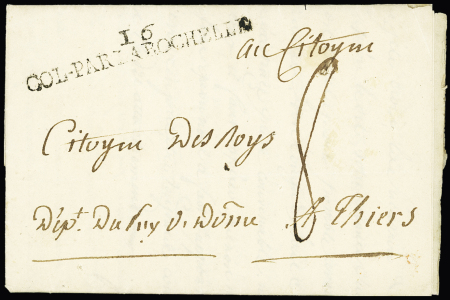 16
COL-PAR LA ROCHELLE
au Citoyen
Citoyen Des Roys
8
Dépt. Du Puy de Dôme A Thiers